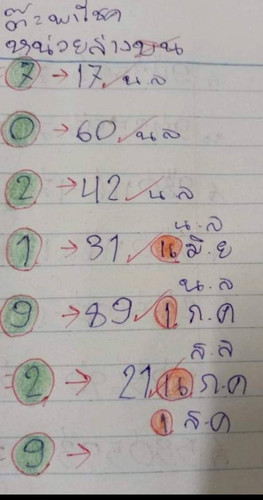 ตี๋=พาโชค
หน่วยล่างบน
7 → 17 น.ล
0 → 60 น.ล
2 → 42 น.ล
น.ล
1 → 31 1น มิ.ย
น.ล
9 → 89 1 ก.ค
ส.ล
=2 → 21 1น ก.ค
1 ส.ค
=9 →